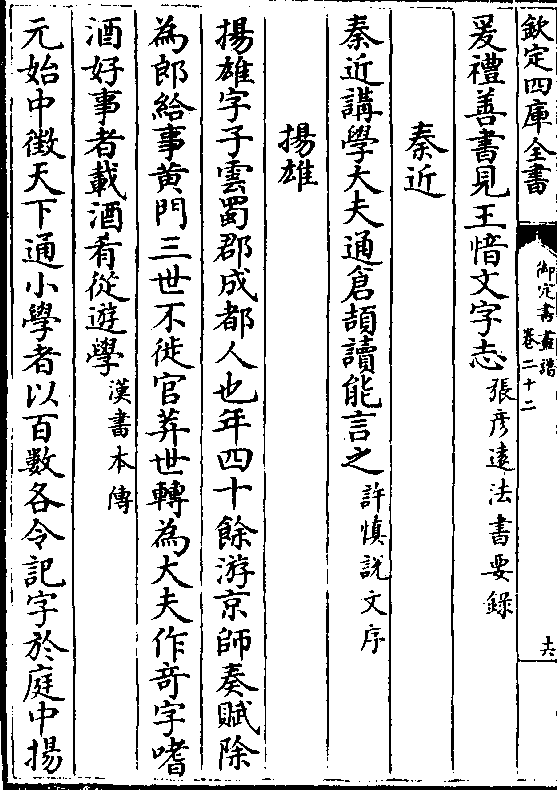 欽定四庫全書
御定書畫譜
卷二十二
十六
爰禮善書見王愔文字志張彥遠法書要錄
秦近
秦近講學大夫通倉頡讀能言之許慎說文序
揚雄
揚雄字子雲蜀郡成都人也年四十餘游京師奏賦除
為郎給事黃門三世不徙官莽世轉為大夫作竒字嗜
酒好事者載酒肴從遊學漢書本傳
元始中徵天下通小學者以百數各令記字於庭中揚